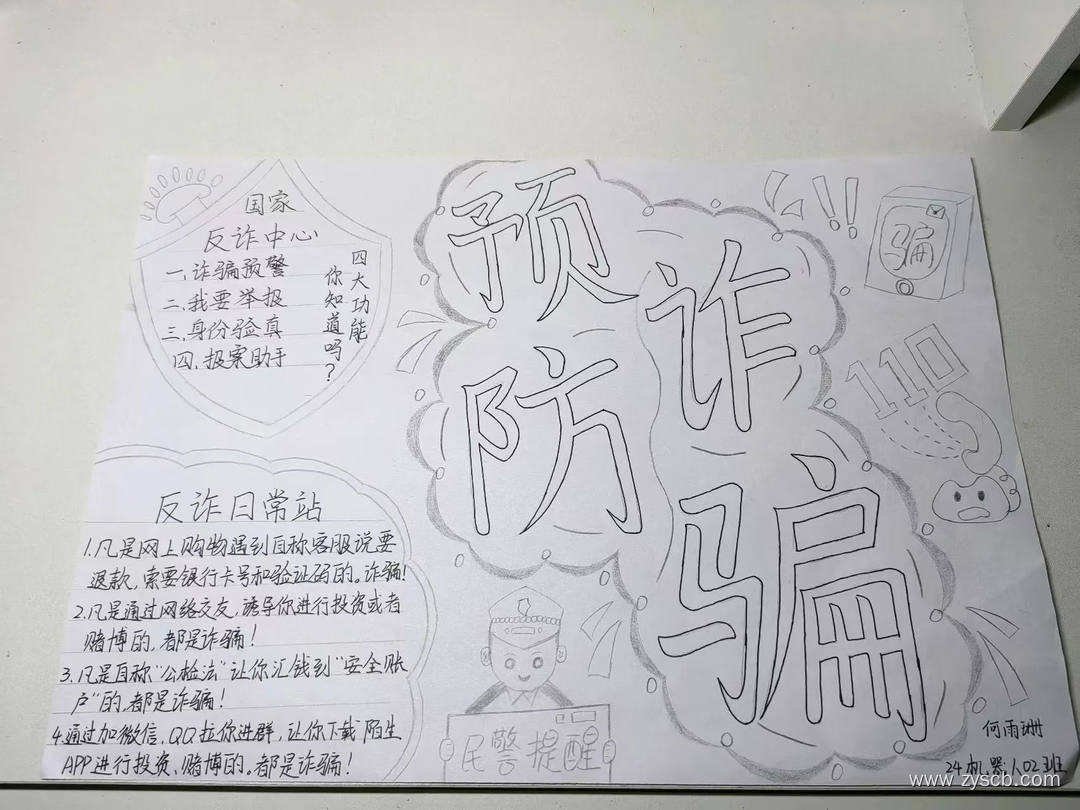 国家
反诈中心
一、诈骗预警
二、我要举报
三、身份验真
四、报案助手
四大功能
你知道吗？
预防
诈骗
骗
110
反诈日常站
1.凡是网上购物遇到自称客服说要
退款，索要银行卡号和验证码的。诈骗！
2.凡是通过网络交友，诱导你进行投资或者
赌博的，都是诈骗！
3.凡是自称“公检法”让你汇钱到“安全账
户”的，都是诈骗！
4.通过加微信、QQ拉你进群，让你下载陌生
APP进行投资、赌博的。都是诈骗！
民警提醒
何雨珊
24机器人02班
www.zyscb.com